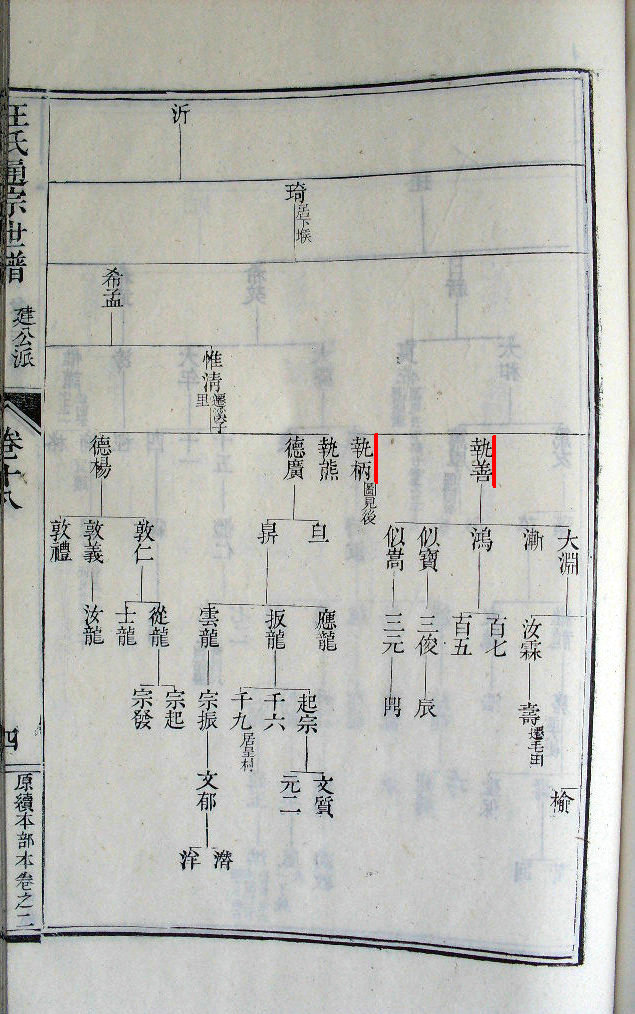 汪氏通宗世譜
建公派
卷十八
四
原續本部本卷之二
沂
琦居下堠
希孟
惟清遷溪子里
執善
執柄圖見後
執熊
德廣
德楊
大淵
漸
鴻
似寶
似嵩
亘
昪
敦仁
敦義
敦禮
汝霖
百七
百五
三俊
三元
應龍
扳龍
雲龍
從龍
士龍
汝龍
壽遷毛田
辰
起宗
千六
千九居呈村
宗振
宗起
宗發
榆
文質
元二
文郁
潛